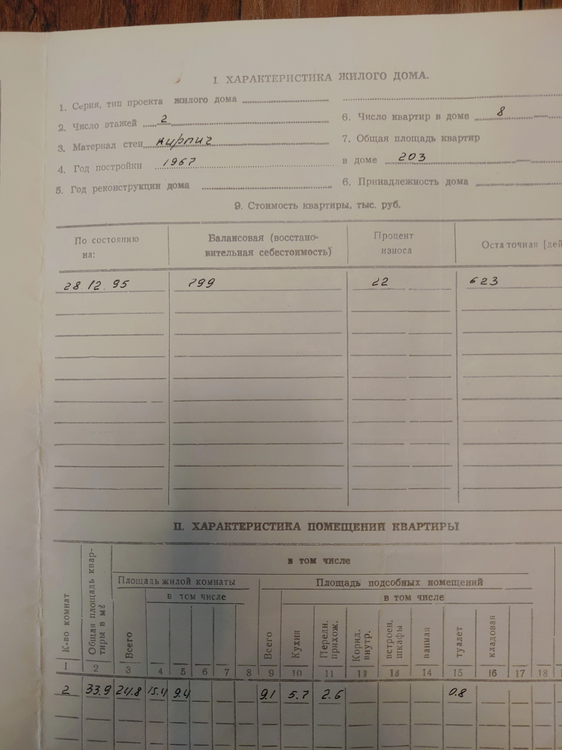 I. ХАРАКТЕРИСТИКА ЖИЛОГО ДОМА.
1. Серия, тип проекта жилого дома
2. Число этажей 2
6. Число квартир в доме 8
3. Материал стен Кирпич
7. Общая площадь квартир
4. Год постройки 1967
в доме 203
5. Год реконструкции дома
6. Принадлежность дома
9. Стоимость квартиры, тыс. руб.
По состоянию на:
Балансовая (восстано-
вительная себестоимость)
Процент износа
Остаточная (дей
28 12 95 799 22 623
II. ХАРАКТЕРИСТИКА ПОМЕЩЕНИЙ КВАРТИРЫ
К-во комнат
Общая площадь квар-
тиры в м²
в том числе
Площадь жилой комнаты
Площадь подсобных помещений
в том числе
в том числе
Всего
Всего
Кухня
Передн.
прихож.
Корид.
внутр.
встроен.
шкафы
ванная
туалет
кладовая
1 2 3 4 5 6 7 8 9 10 11 13 14 15 16 17 18
2 33.9 24.8 15.4 9.4 9.1 5.7 2.6 0.8